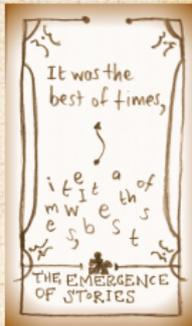 It was the
best of times,
i t e I t a of
m w e th s
e s, b s t
THE EMERGENCE
OF STORIES